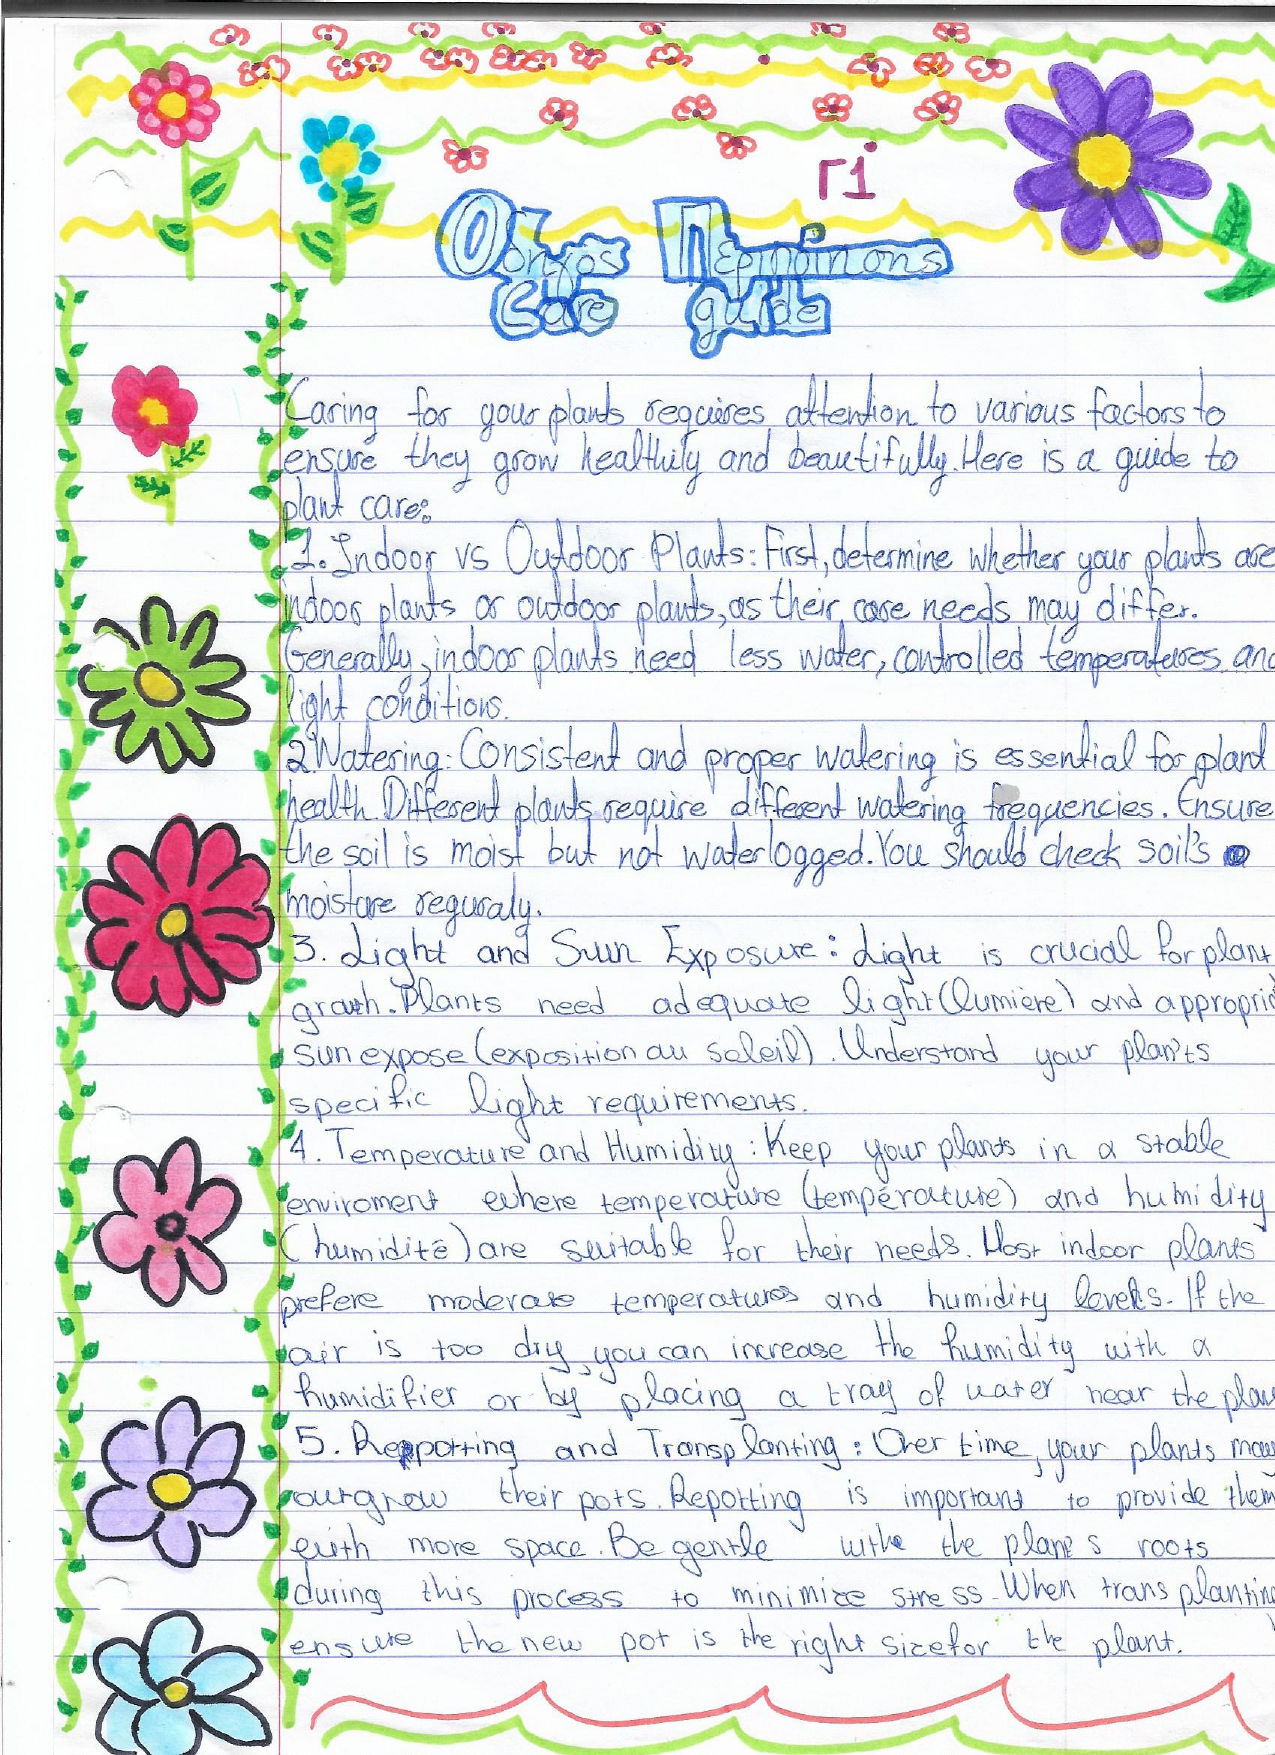 Γ1
Οδηγός Περιποίησης
Care guide
Caring for your plants requires attention to various factors to
ensure they grow healthily and beautifully. Here is a guide to
plant care:
1. Indoor vs Outdoor Plants: First, determine whether your plants are
indoor plants or outdoor plants, as their care needs may differ.
Generally, indoor plants need less water, controlled temperatures and
light conditions.
2. Watering: Consistent and proper watering is essential for plant
health. Different plants require different watering frequencies. Ensure
the soil is moist but not waterlogged. You should check soil's
moisture reguraly.
3. Light and Sun Exposure: Light is crucial for plant
growth. Plants need adequate light (lumière) and appropri
sun expose (exposition au soleil). Understand your plan's
specific light requirements.
4. Temperature and Humidity: Keep your plants in a stable
enviroment where temperature (température) and humidity
(humidité) are suitable for their needs. Most indoor plants
prefere moderate temperatures and humidity levels. If the
air is too dry, you can increase the humidity with a
humidifier or by placing a tray of water near the plan
5. Repotting and Transplanting: Over time, your plants may
outgrow their pots. Repotting is important to provide them
with more space. Be gentle withe the plant s roots
during this process to minimize stress. When transplanting
ensure the new pot is the right size for the plant.